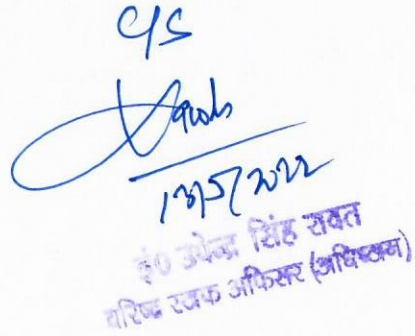 C/S
13/5/2022
इं० उपेन्द्र सिंह रावत
वरिष्ठ स्टाफ अफिसर (अधिष्ठान)